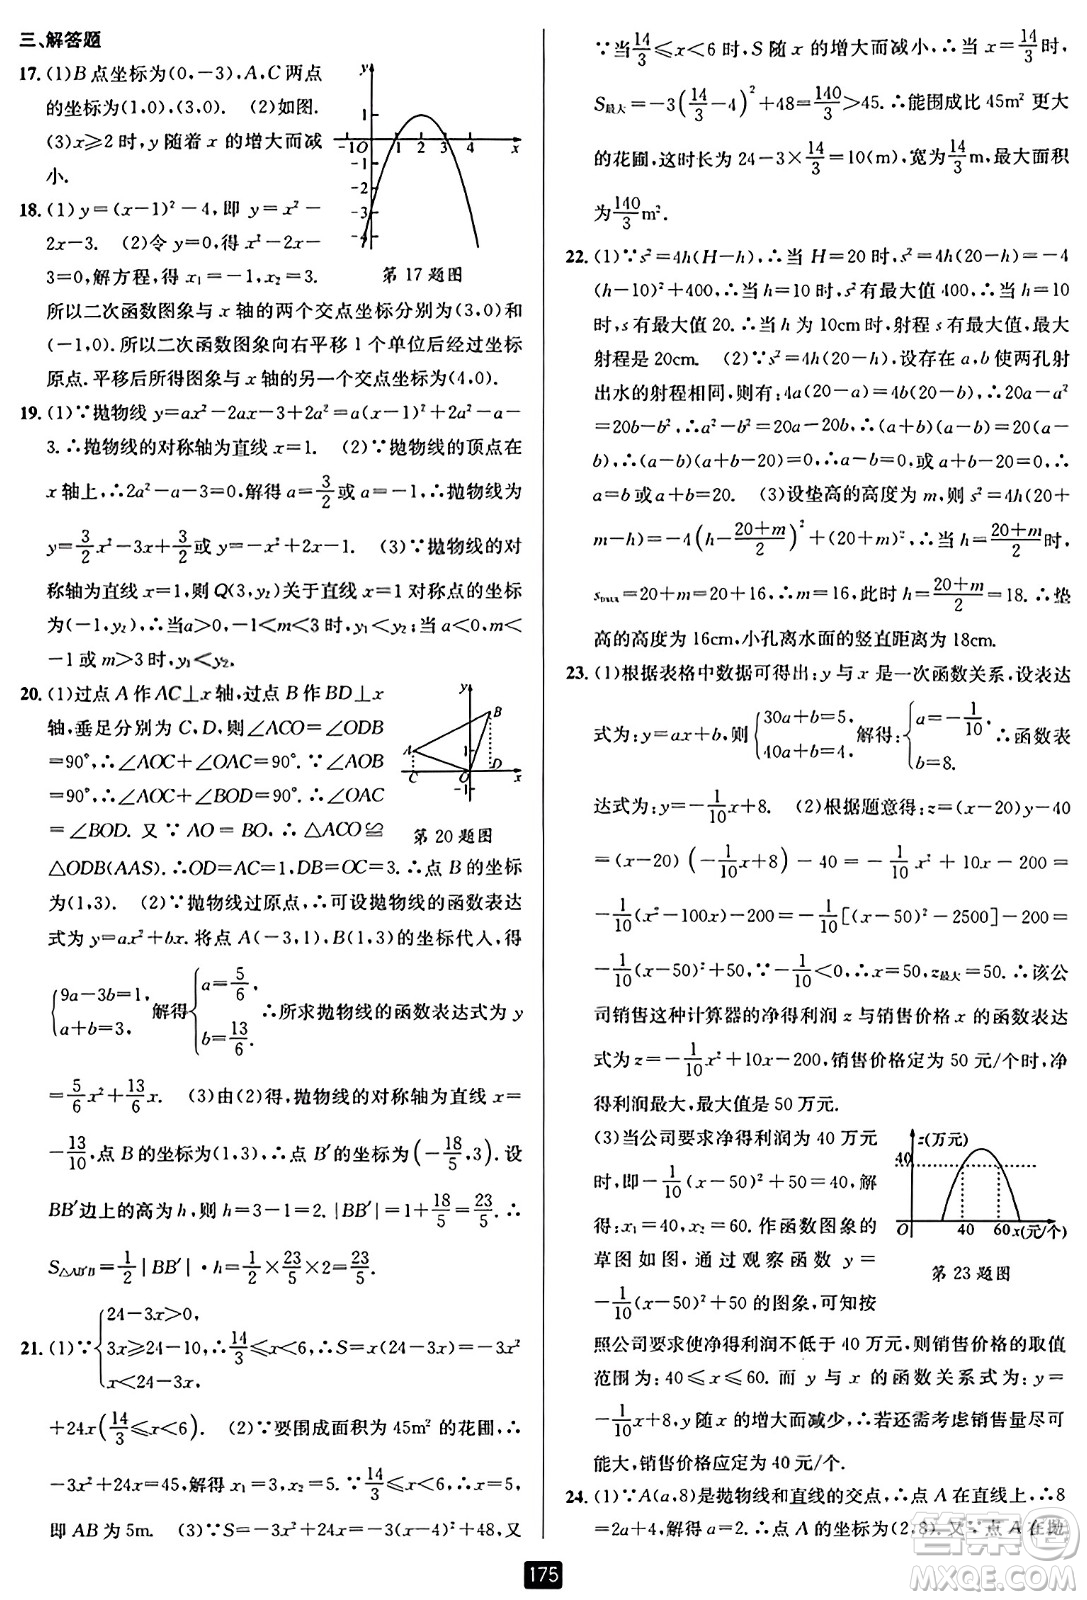 三、解答题
17.(1)B点坐标为(0,-3),A,C两点
的坐标为(1,0),(3,0). (2)如图.
(3)x⩾2时,y随着x的增大而减
小.
y
1
-1 O 1 2 3 4 x
-1
-2
-3
-4
第17题图
18.(1)y=(x-1)²-4,即y=x²-
2x-3. (2)令y=0,得x²-2x-
3=0,解方程,得x₁=-1,x₂=3.
所以二次函数图象与x轴的两个交点坐标分别为(3,0)和
(-1,0).所以二次函数图象向右平移1个单位后经过坐标
原点.平移后所得图象与x轴的另一个交点坐标为(4,0).
19.(1)∵抛物线y=ax²-2ax-3+2a²=a(x-1)²+2a²-a-
3.∴抛物线的对称轴为直线x=1. (2)∵抛物线的顶点在
x轴上,∴2a²-a-3=0,解得a=3/2或a=-1,∴抛物线为
y=3/2x²-3x+3/2或y=-x²+2x-1. (3)∵抛物线的对
称轴为直线x=1,则Q(3,y₂)关于直线x=1对称点的坐标
为(-1,y₂),∴当a>0,-1<m<3时,y₁<y₂;当a<0,m<
-1或m>3时,y₁<y₂.
20.(1)过点A作AC⊥x轴,过点B作BD⊥x
轴,垂足分别为C,D,则∠ACO=∠ODB
=90°,∴∠AOC+∠OAC=90°.∵∠AOB
=90°,∴∠AOC+∠BOD=90°,∴∠OAC
=∠BOD.又∵AO=BO,∴△ACO≌
y
B
A
1
C O D x
-1
第20题图
△ODB(AAS).∴OD=AC=1,DB=OC=3.∴点B的坐标
为(1,3). (2)∵抛物线过原点,∴可设抛物线的函数表达
式为y=ax²+bx.将点A(-3,1),B(1,3)的坐标代入,得
{9a-3b=1, a+b=3, 解得{a=5/6, b=13/6. ∴所求抛物线的函数表达式为y
=5/6x²+13/6x. (3)由(2)得,抛物线的对称轴为直线x=
-13/10,点B的坐标为(1,3),∴点B′的坐标为(-18/5,3).设
BB′边上的高为h,则h=3-1=2.|BB′|=1+18/5=23/5.∴
S△AB′B=1/2|BB′|·h=1/2×23/5×2=23/5.
21.(1)∵{24-3x>0, 3x⩾24-3x, x<24-3x, ∴14/3⩽x<6,∴S=x(24-3x)=-3x²
+24x(14/3⩽x<6). (2)∵要围成面积为45m²的花圃,∴
-3x²+24x=45,解得x₁=3,x₂=5.∵14/3⩽x<6,∴x=5,
即AB为5m. (3)∵S=-3x²+24x=-3(x-4)²+48,又
∵当14/3⩽x<6时,S随x的增大而减小,∴当x=14/3时,
S最大=-3(14/3-4)²+48=140/3>45.∴能围成比45m²更大
的花圃,这时长为24-3×14/3=10(m),宽为14/3m,最大面积
为140/3m².
22.(1)∵s²=4h(H-h),∴当H=20时,s²=4h(20-h)=-4
(h-10)²+400,∴当h=10时,s²有最大值400,∴当h=10
时,s有最大值20.∴当h为10cm时,射程s有最大值,最大
射程是20cm. (2)∵s²=4h(20-h),设存在a,b使两孔射
出水的射程相同,则有:4a(20-a)=4b(20-b),∴20a-a²
=20b-b²,∴a²-b²=20a-20b,∴(a+b)(a-b)=20(a-
b),∴(a-b)(a+b-20)=0,∴a-b=0或a+b-20=0,∴
a=b或a+b=20. (3)设垫高的高度为m,则s²=4h(20+
m-h)=-4(h-(20+m)/2)²+(20+m)²,∴当h=(20+m)/2时,
smax=20+m=20+16,∴m=16,此时h=(20+m)/2=18.∴垫
高的高度为16cm,小孔离水面的竖直距离为18cm.
23.(1)根据表格中数据可得出:y与x是一次函数关系,设表达
式为:y=ax+b,则{30a+b=5, 40a+b=4, 解得:{a=-1/10, b=8. ∴函数表
达式为:y=-1/10x+8. (2)根据题意得:z=(x-20)y-40
=(x-20)(-1/10x+8)-40=-1/10x²+10x-200=
-1/10(x²-100x)-200=-1/10[(x-50)²-2500]-200=
-1/10(x-50)²+50,∵-1/10<0,∴x=50,z最大=50.∴该公
司销售这种计算器的净得利润z与销售价格x的函数表达
式为z=-1/10x²+10x-200,销售价格定为50元/个时,净
得利润最大,最大值是50万元.
(3)当公司要求净得利润为40万元
时,即-1/10(x-50)²+50=40,解
得:x₁=40,x₂=60.作函数图象的
草图如图,通过观察函数y=
-1/10(x-50)²+50的图象,可知按
z(万元)
40
O 40 60 x(元/个)
第23题图
照公司要求使净得利润不低于40万元,则销售价格的取值
范围为:40⩽x⩽60.而y与x的函数关系式为:y=
-1/10x+8,y随x的增大而减少,∴若还需考虑销售量尽可
能大,销售价格应定为40元/个.
24.(1)∵A(a,8)是抛物线和直线的交点,∴点A在直线上,∴8
=2a+4,解得a=2.∴点A的坐标为(2,8).又∵点A在抛
175
MXQE.COM